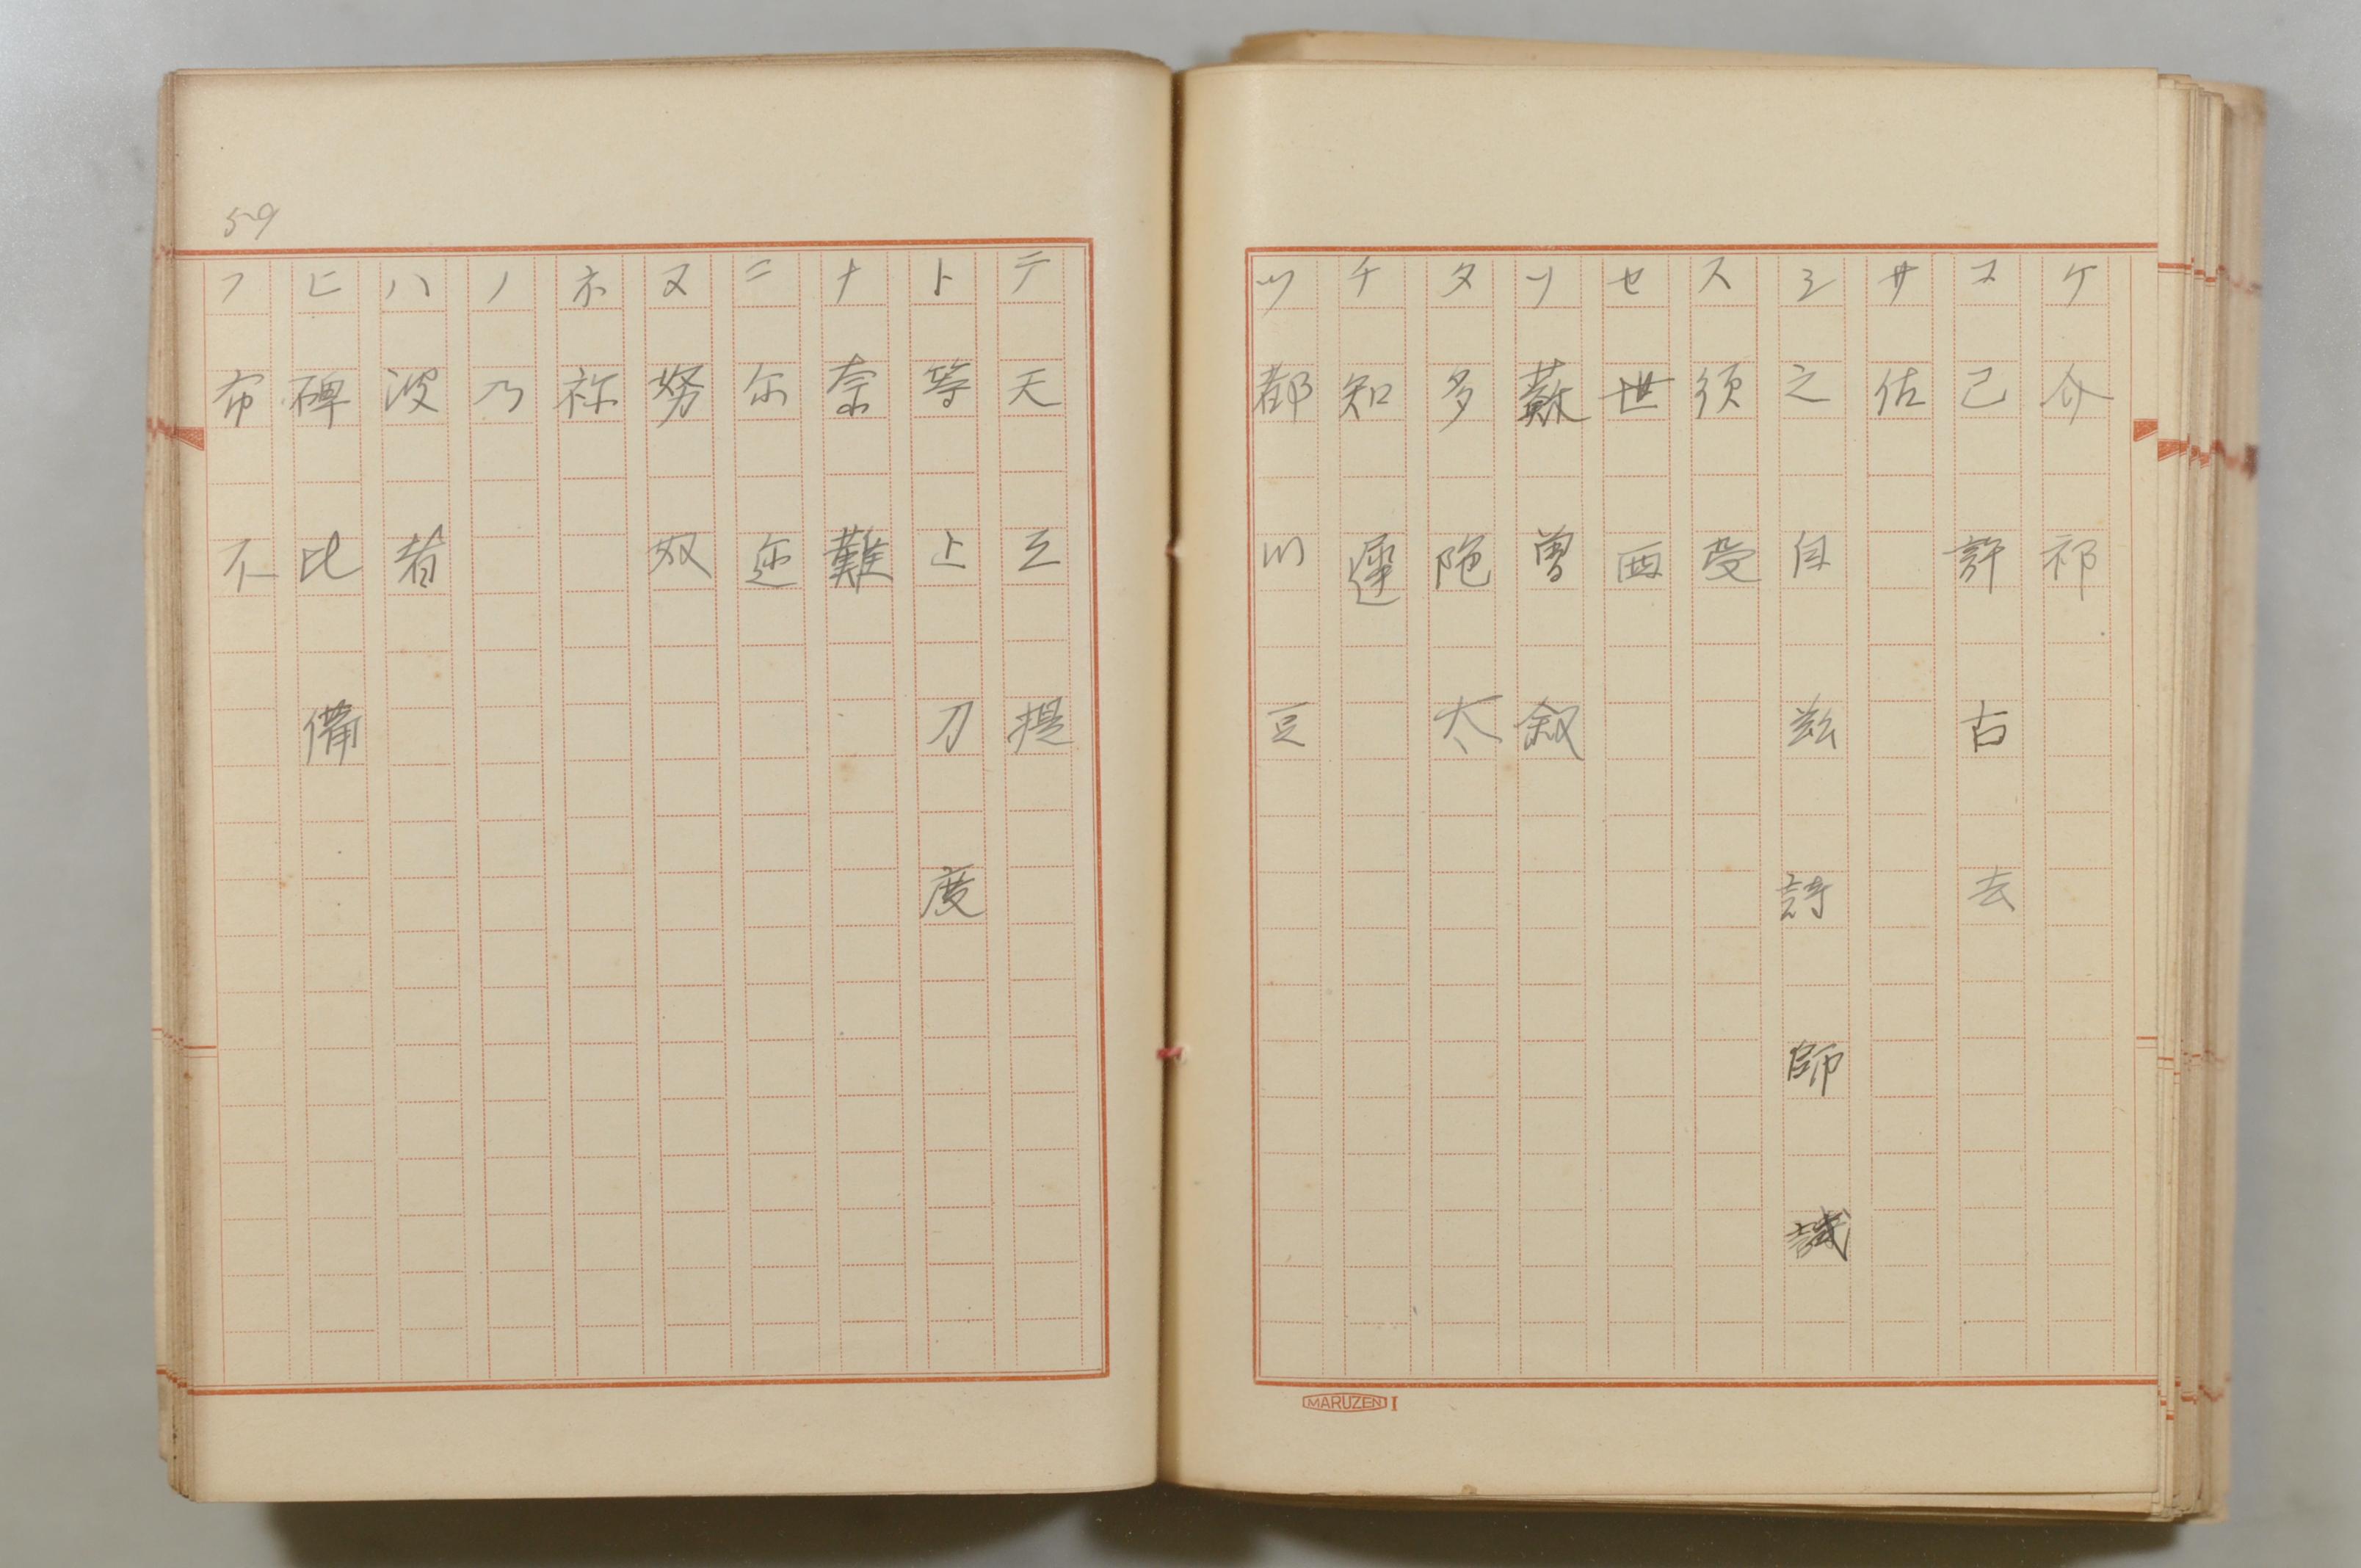 ケ 介 祁
コ 己 許 古 去
サ 佐
シ 之 自 玆 詩 師 誠
ス 須 受
セ 世 西
ソ 蘇 曽 叙
タ 多 陁 太
チ 知 遲
ツ 都 川 豆
MARUZEN I
テ 天 弖 提
ト 等 止 刀 度
ナ 奈 難
ニ 尓 迩
ヌ 努 奴
ネ 祢
ノ 乃
ハ 波 者
ヒ 碑 比 備
フ 布 不
59